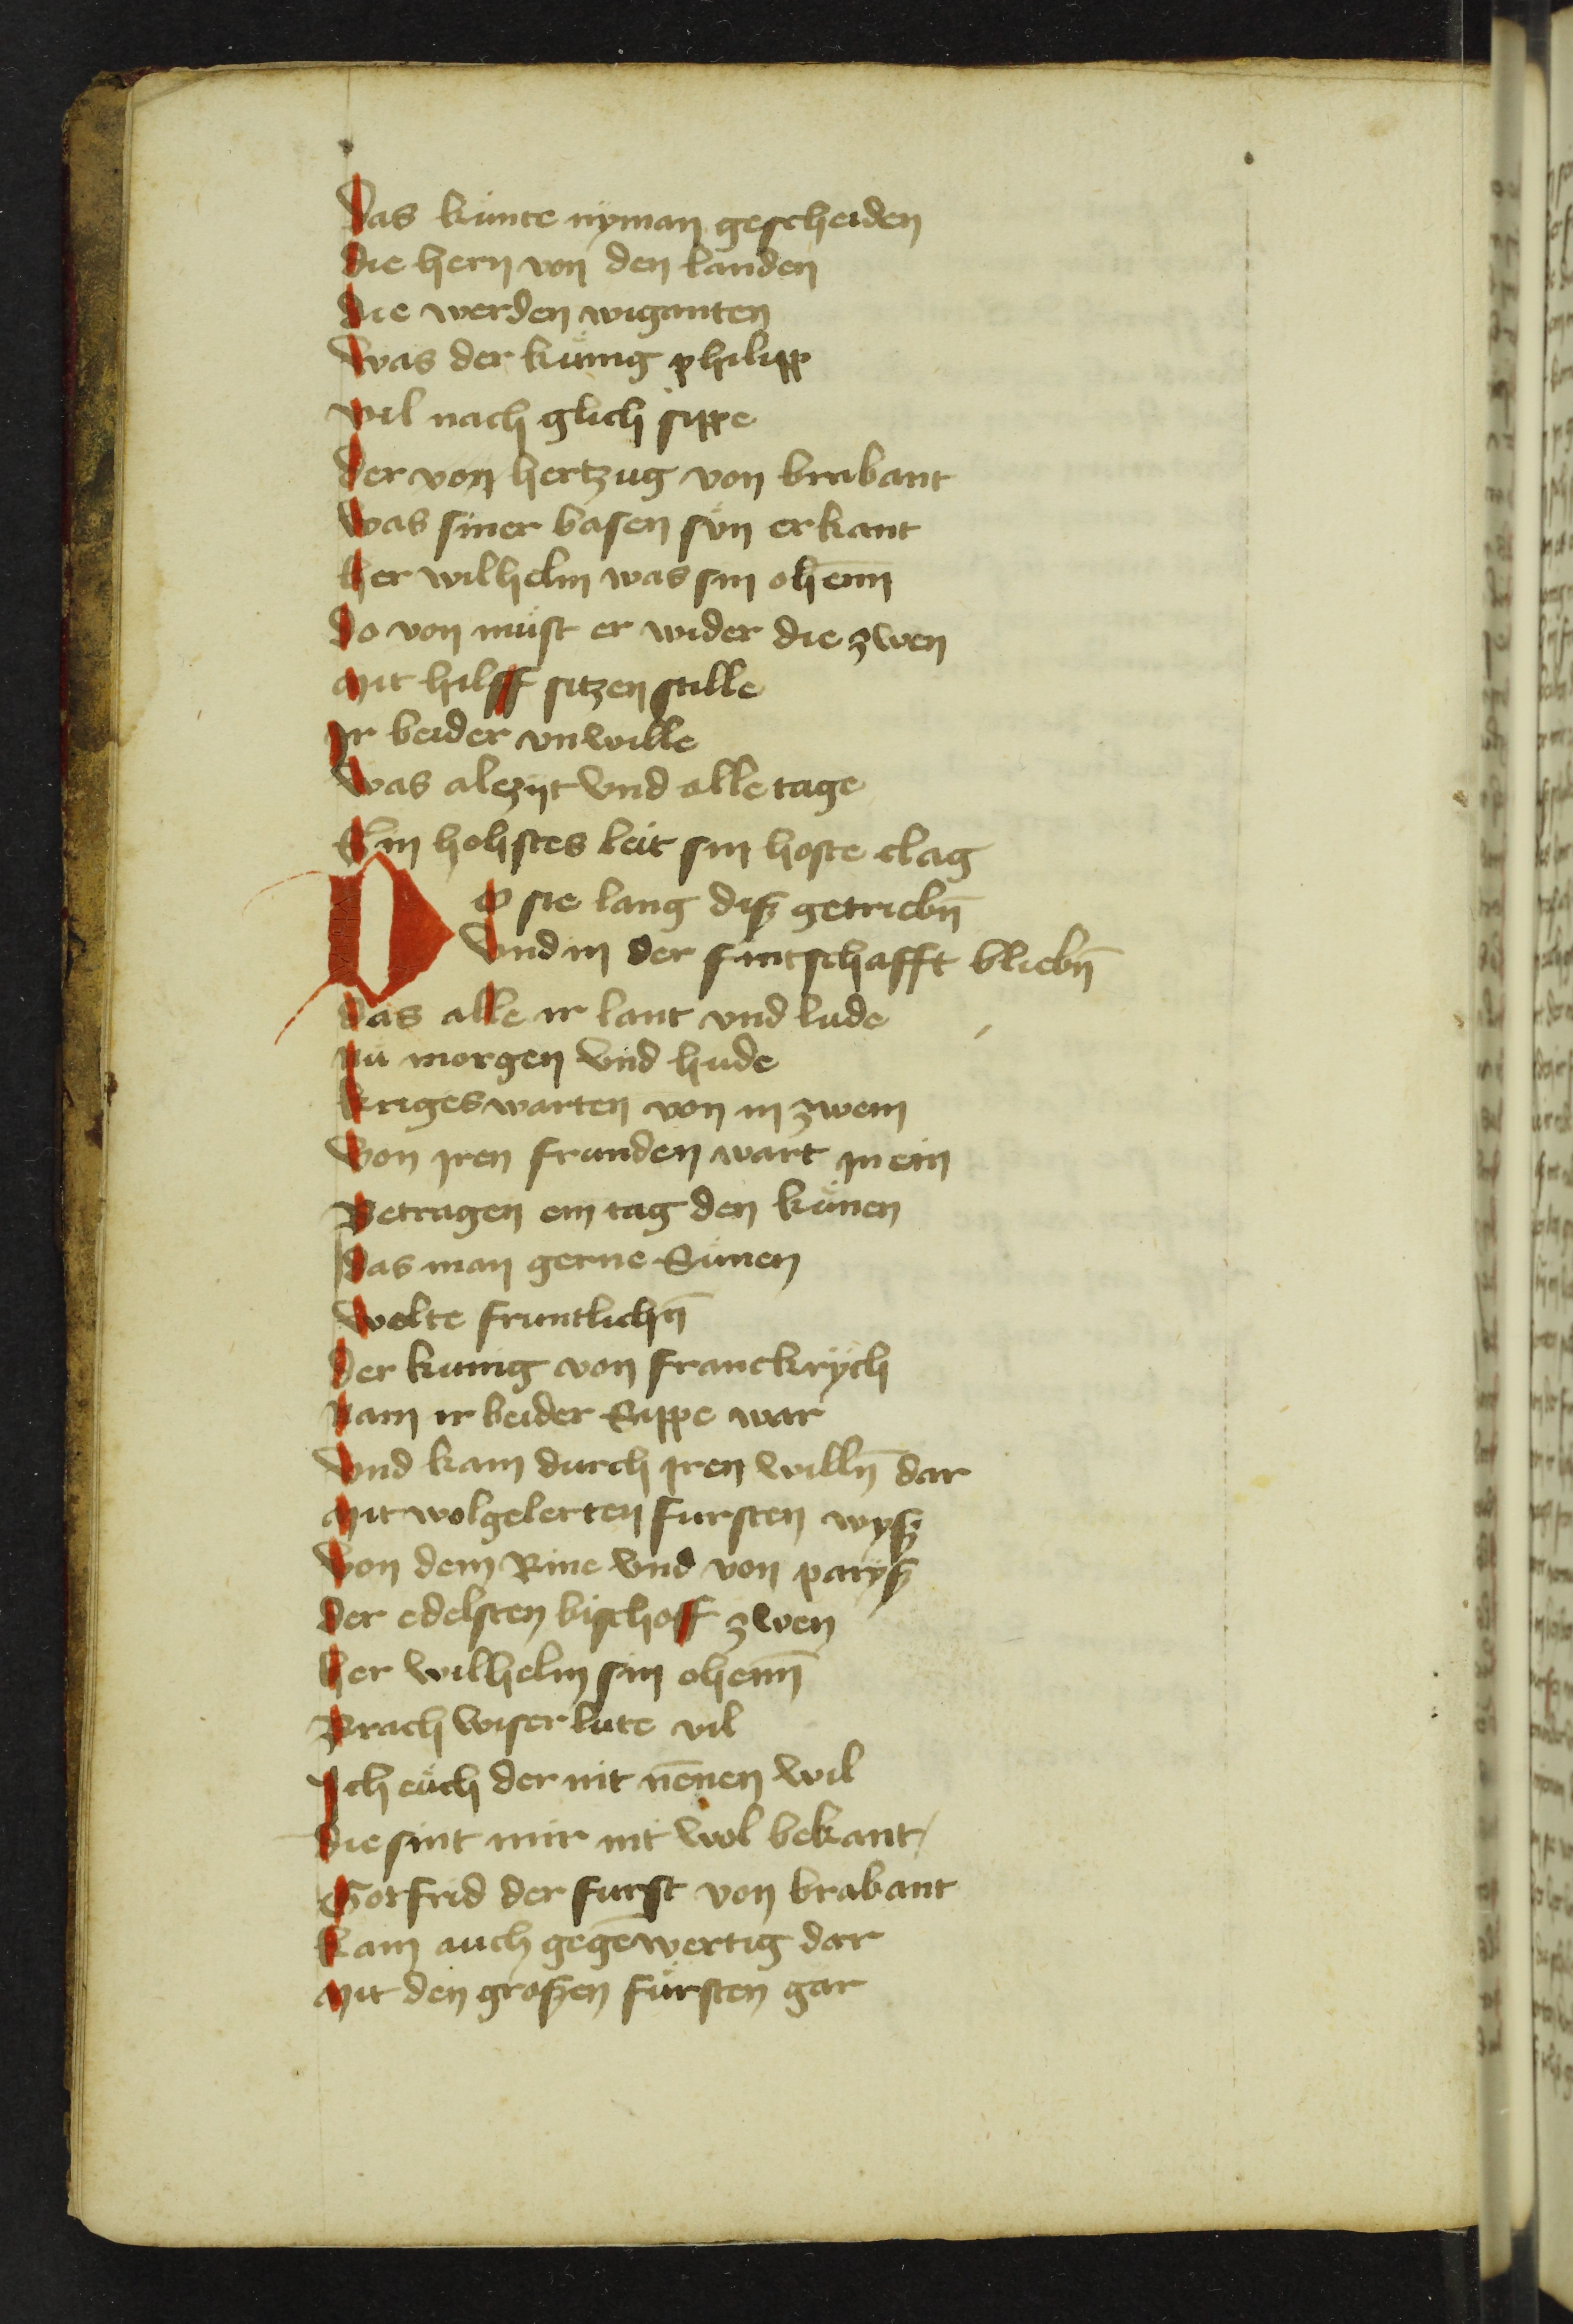 Das kunte nyman gescheiden
die hern von den landen
die werden wiganten
Was der kuͦnig philipp
vil nach glich sippe
der von hertzug von brabant
Was siner basen sün erkant
her wilhelm was sin ohenn̄
do von muͤst er wider die zwen
Mit hilff sitzen stille
Ir beider vnwille
Was alezijt vnd alle tage
Sin hohstes leit sin hoste clag
Do sie lang disz getriebn̄
Vnd in der fintschafft bliebn̄
das alle ir lant vnd lude
Nuͦ morgen vnd hude
kriges warten von in zwein
Von iren frunden wart in ein
Betragen ein tag den kuͤnen
das man gerne Suͤnen
Wolte fruntlichn̄
Der kunig von franckrÿch
Nam ir beider Sippe war
Vnd kam durch iren willn̄ dar
Mit wolgelerten fursten wysz
Von dem Rine vnd von parysz
der edelsten bischoff zwen
her wilhelm sin ohenn̄
Brach wiser lute vil
Ich eüch der nit nēnen wil
die sint mir nit wol bekant /
Gotfrid der furst von brabant
kam auch gegēwertig dar
Mit den groszen fuͤrsten gar